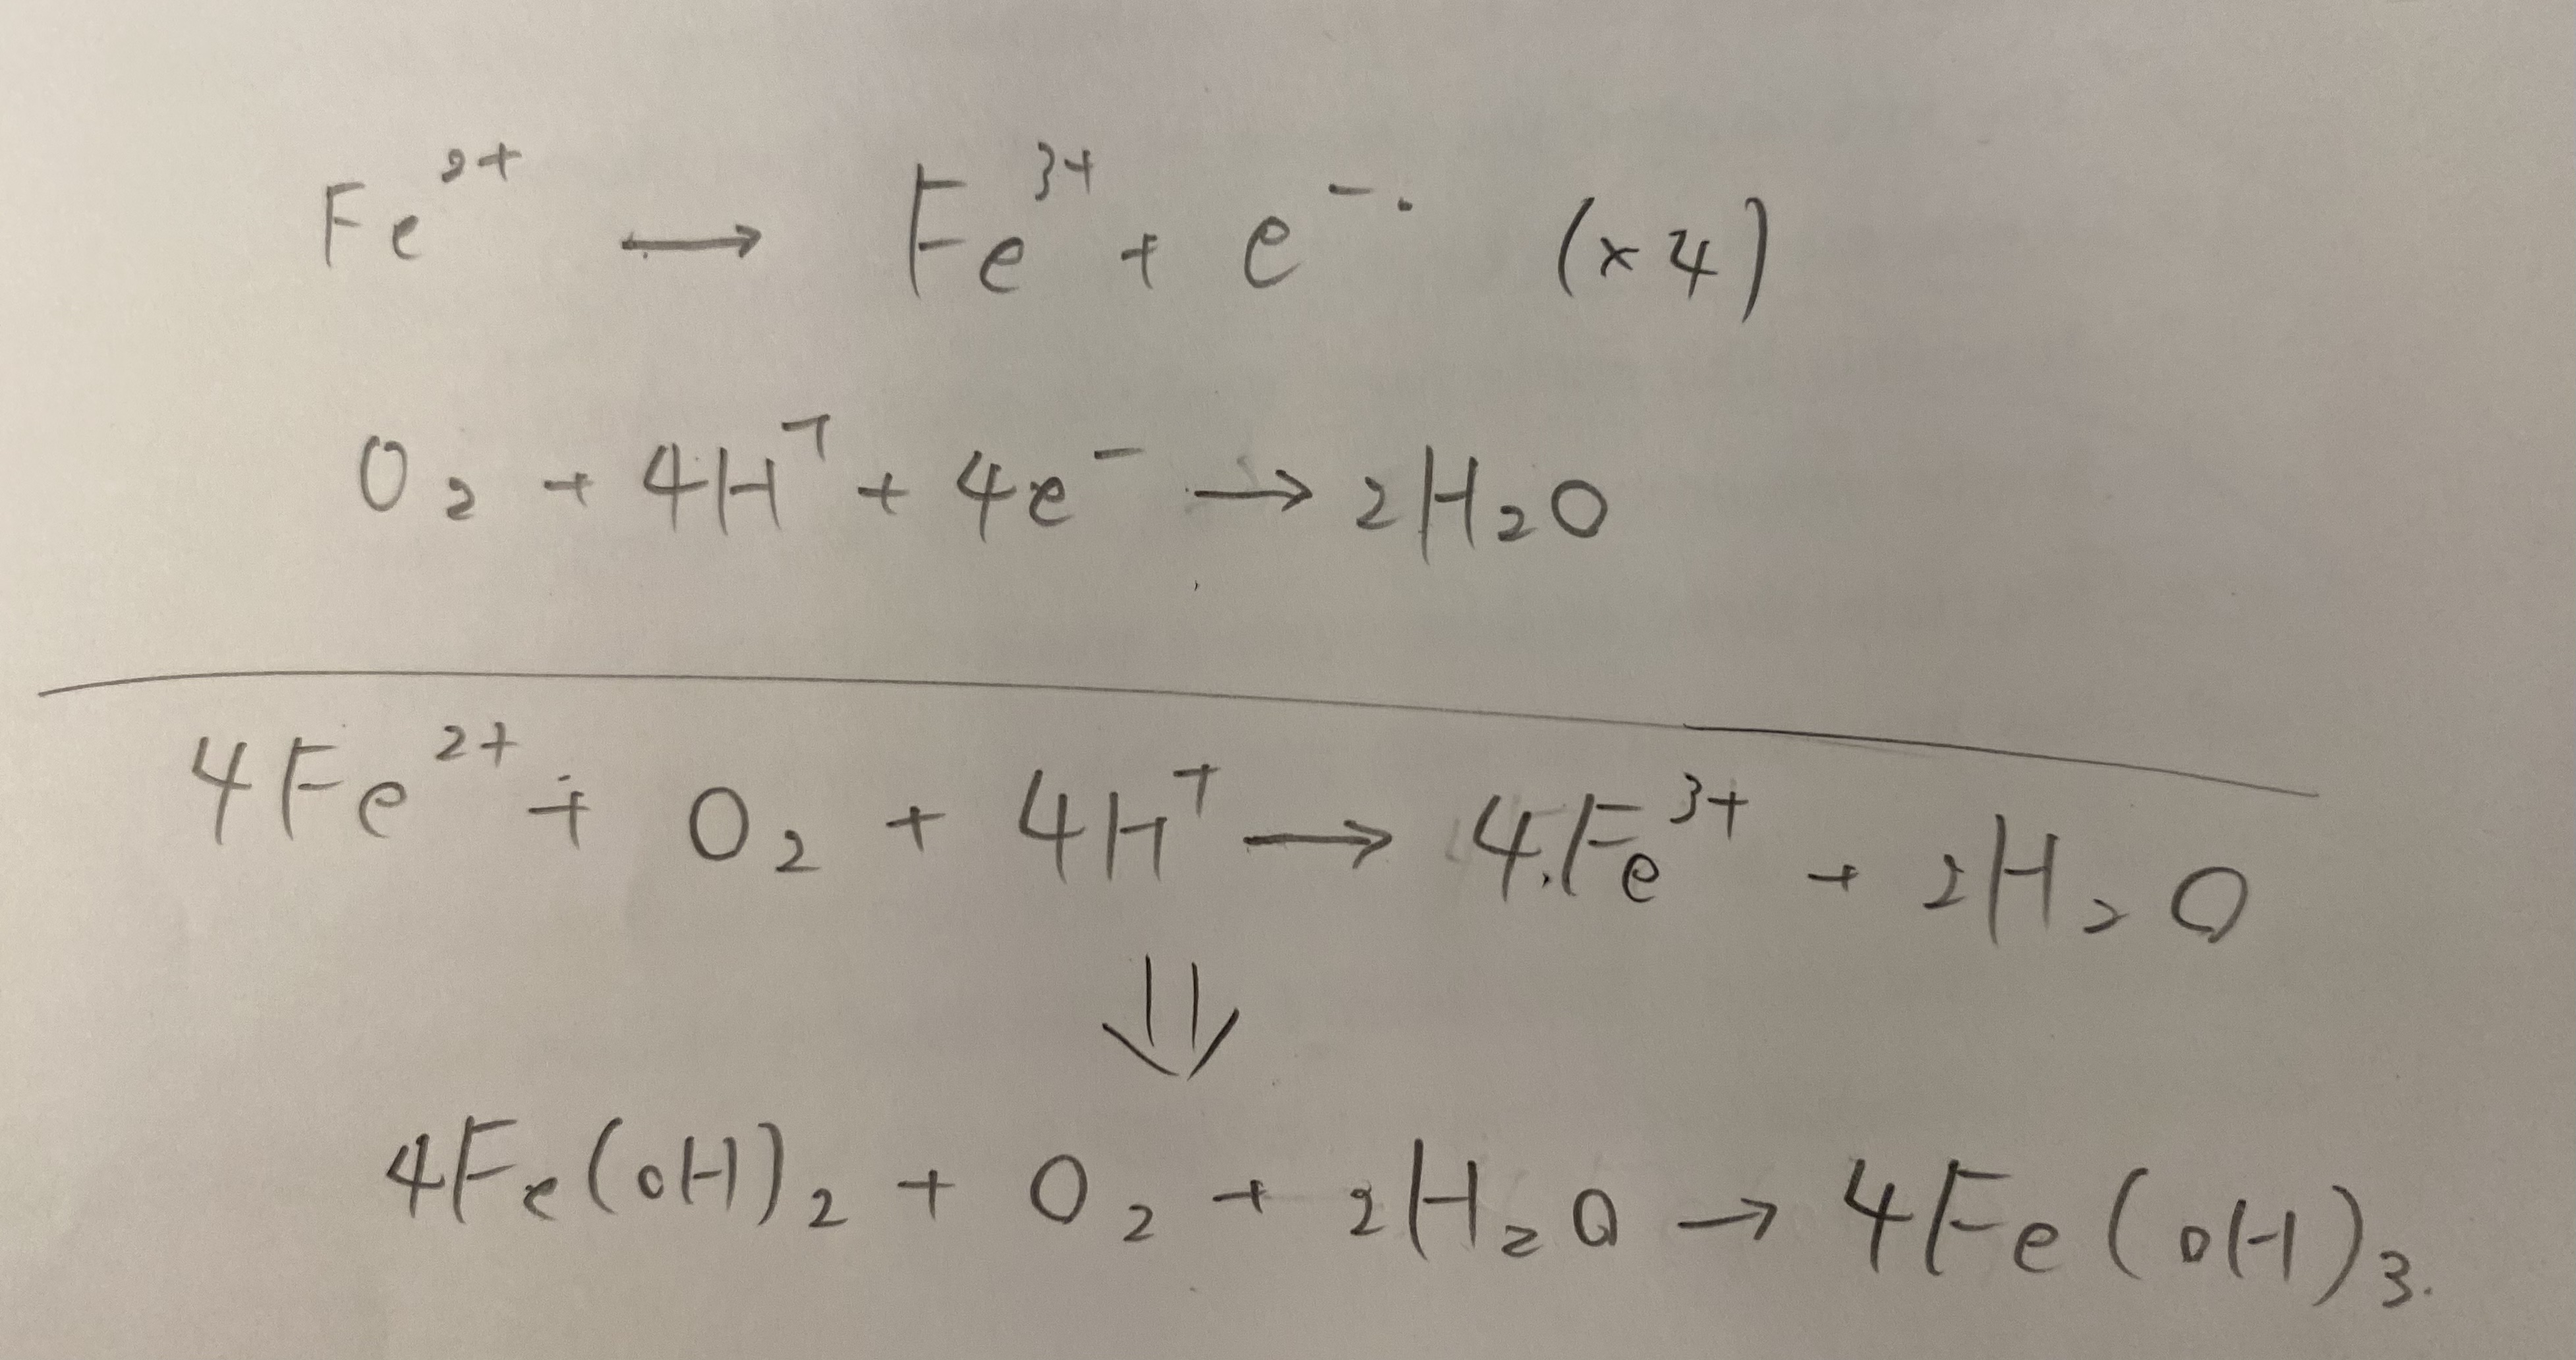 Fe²⁺ → Fe³⁺ + e⁻. (×4)
O₂ + 4H⁺ + 4e⁻ → 2H₂O
4Fe²⁺ + O₂ + 4H⁺ → 4Fe³⁺ + 2H₂O
⇓
4Fe(OH)₂ + O₂ + 2H₂O → 4Fe(OH)₃.